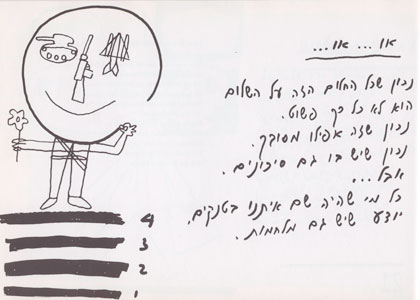 או ... או ...
נכון שכל החלום הזה על השלום
הוא לא כל כך פשוט.
נכון שזה אפילו מסובך.
נכון שיש בו גם סיכונים.
אבל...
כל מי שהיה שם איתנו בטנקים,
יודע שיש גם מלחמות.
4
3
2
1